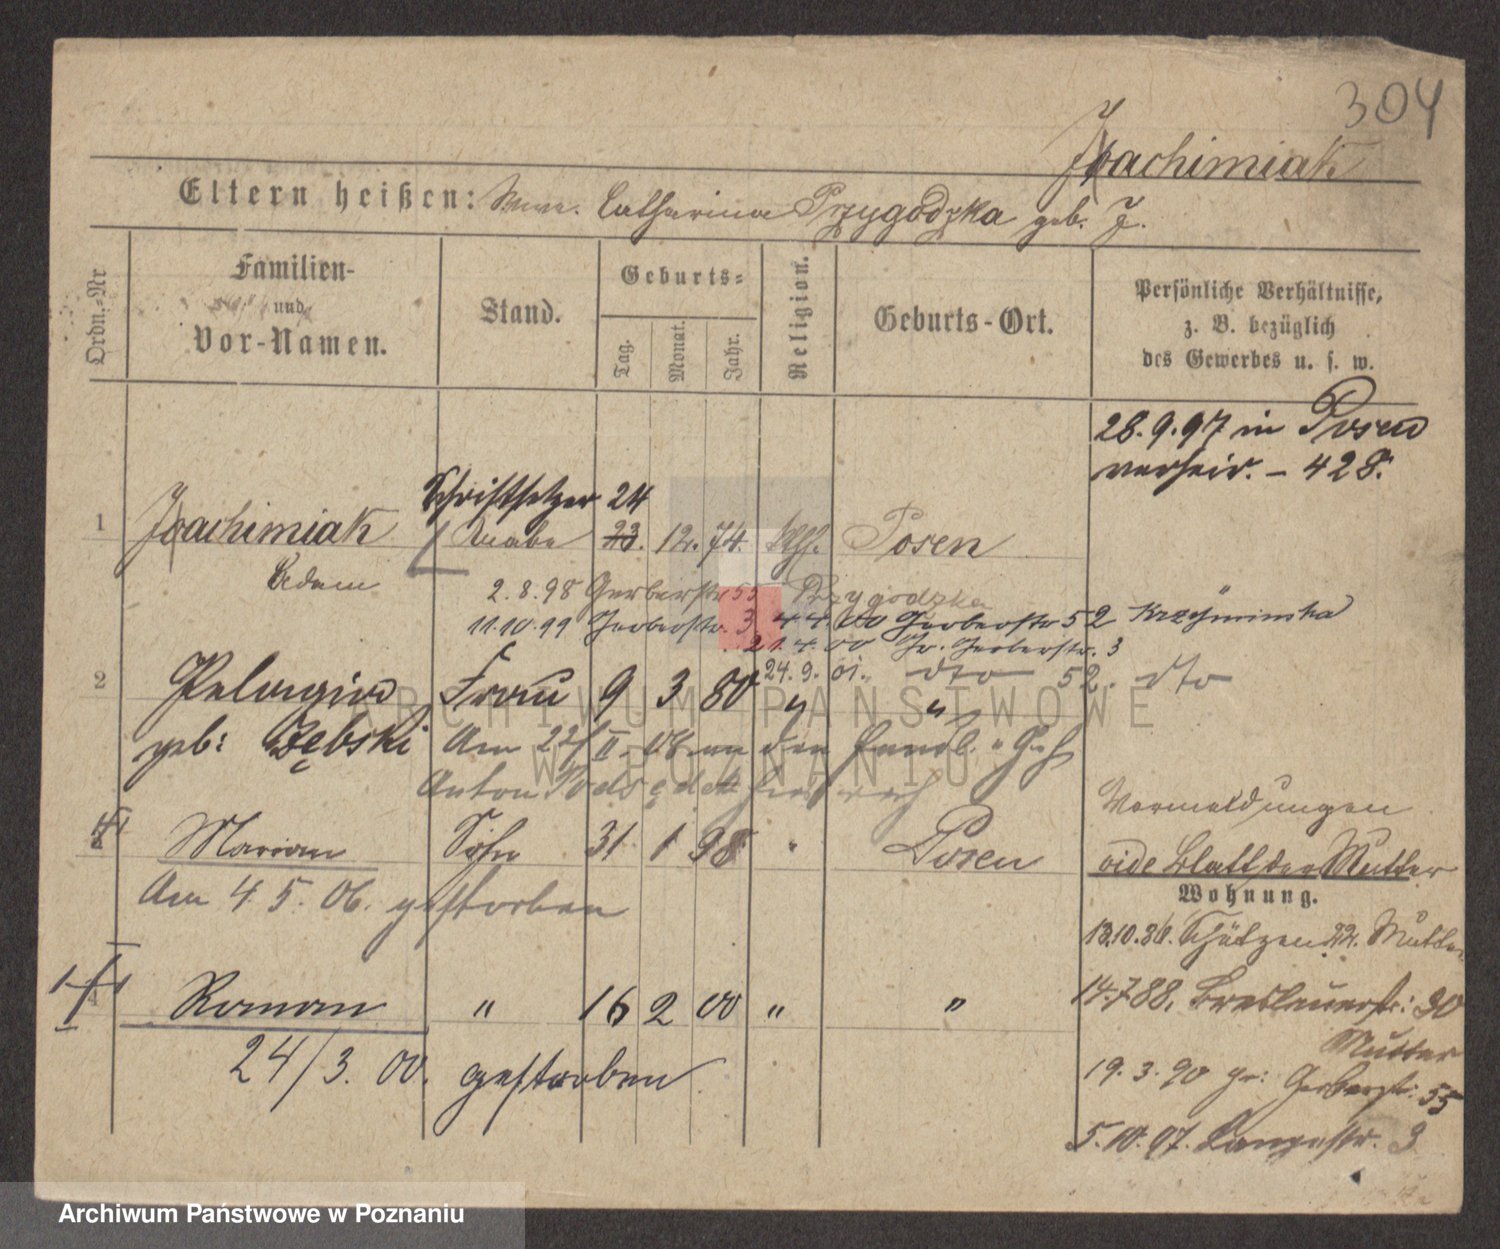 304
Joachimiak
Eltern heißen: Wwe. Catharina Przygodzka geb. J.
Ordn.-Nr
Familien-
und
Vor-Namen.
Stand.
Geburts-
Tag.
Monat.
Jahr.
Religion.
Geburts-Ort.
Persönliche Verhältnisse,
z. B. bezüglich
des Gewerbes u. s. w.
28.9.97 in Posen
verheir. – 428.
Schriftsetzer 24
1 Joachimiak Knabe 23. 12. 74. kth. Posen
Adam
2.8.98 Gerberstr 55 Przygodzka
11.10.99 Gerberstr. 3 4.4.00 Gerberstr 52 Krzyminska
21.4.00 Gr. Gerberstr. 3
24.9.01. dto 52. dto
2 Pelagia Frau 9 3 80 " "
geb: Zębski Am 22/II. 06 an den
Anton
Vermeldungen
3 Marian Sohn 31 1 98 " Posen
vide Blatt der Mutter
Am 4.5.06. gestorben
Wohnung.
13.10.86. Schützen 22. Mutter
4 Roman " 16 2 00 " "
14.7.88. Breslauerstr: 30
Mutter
24/3. 00. gestorben
19.3.90 gr: Gerberstr: 55
5.10.97. Langestr. 3
ARCHIWUM PAŃSTWOWE
W POZNANIU
Archiwum Państwowe w Poznaniu